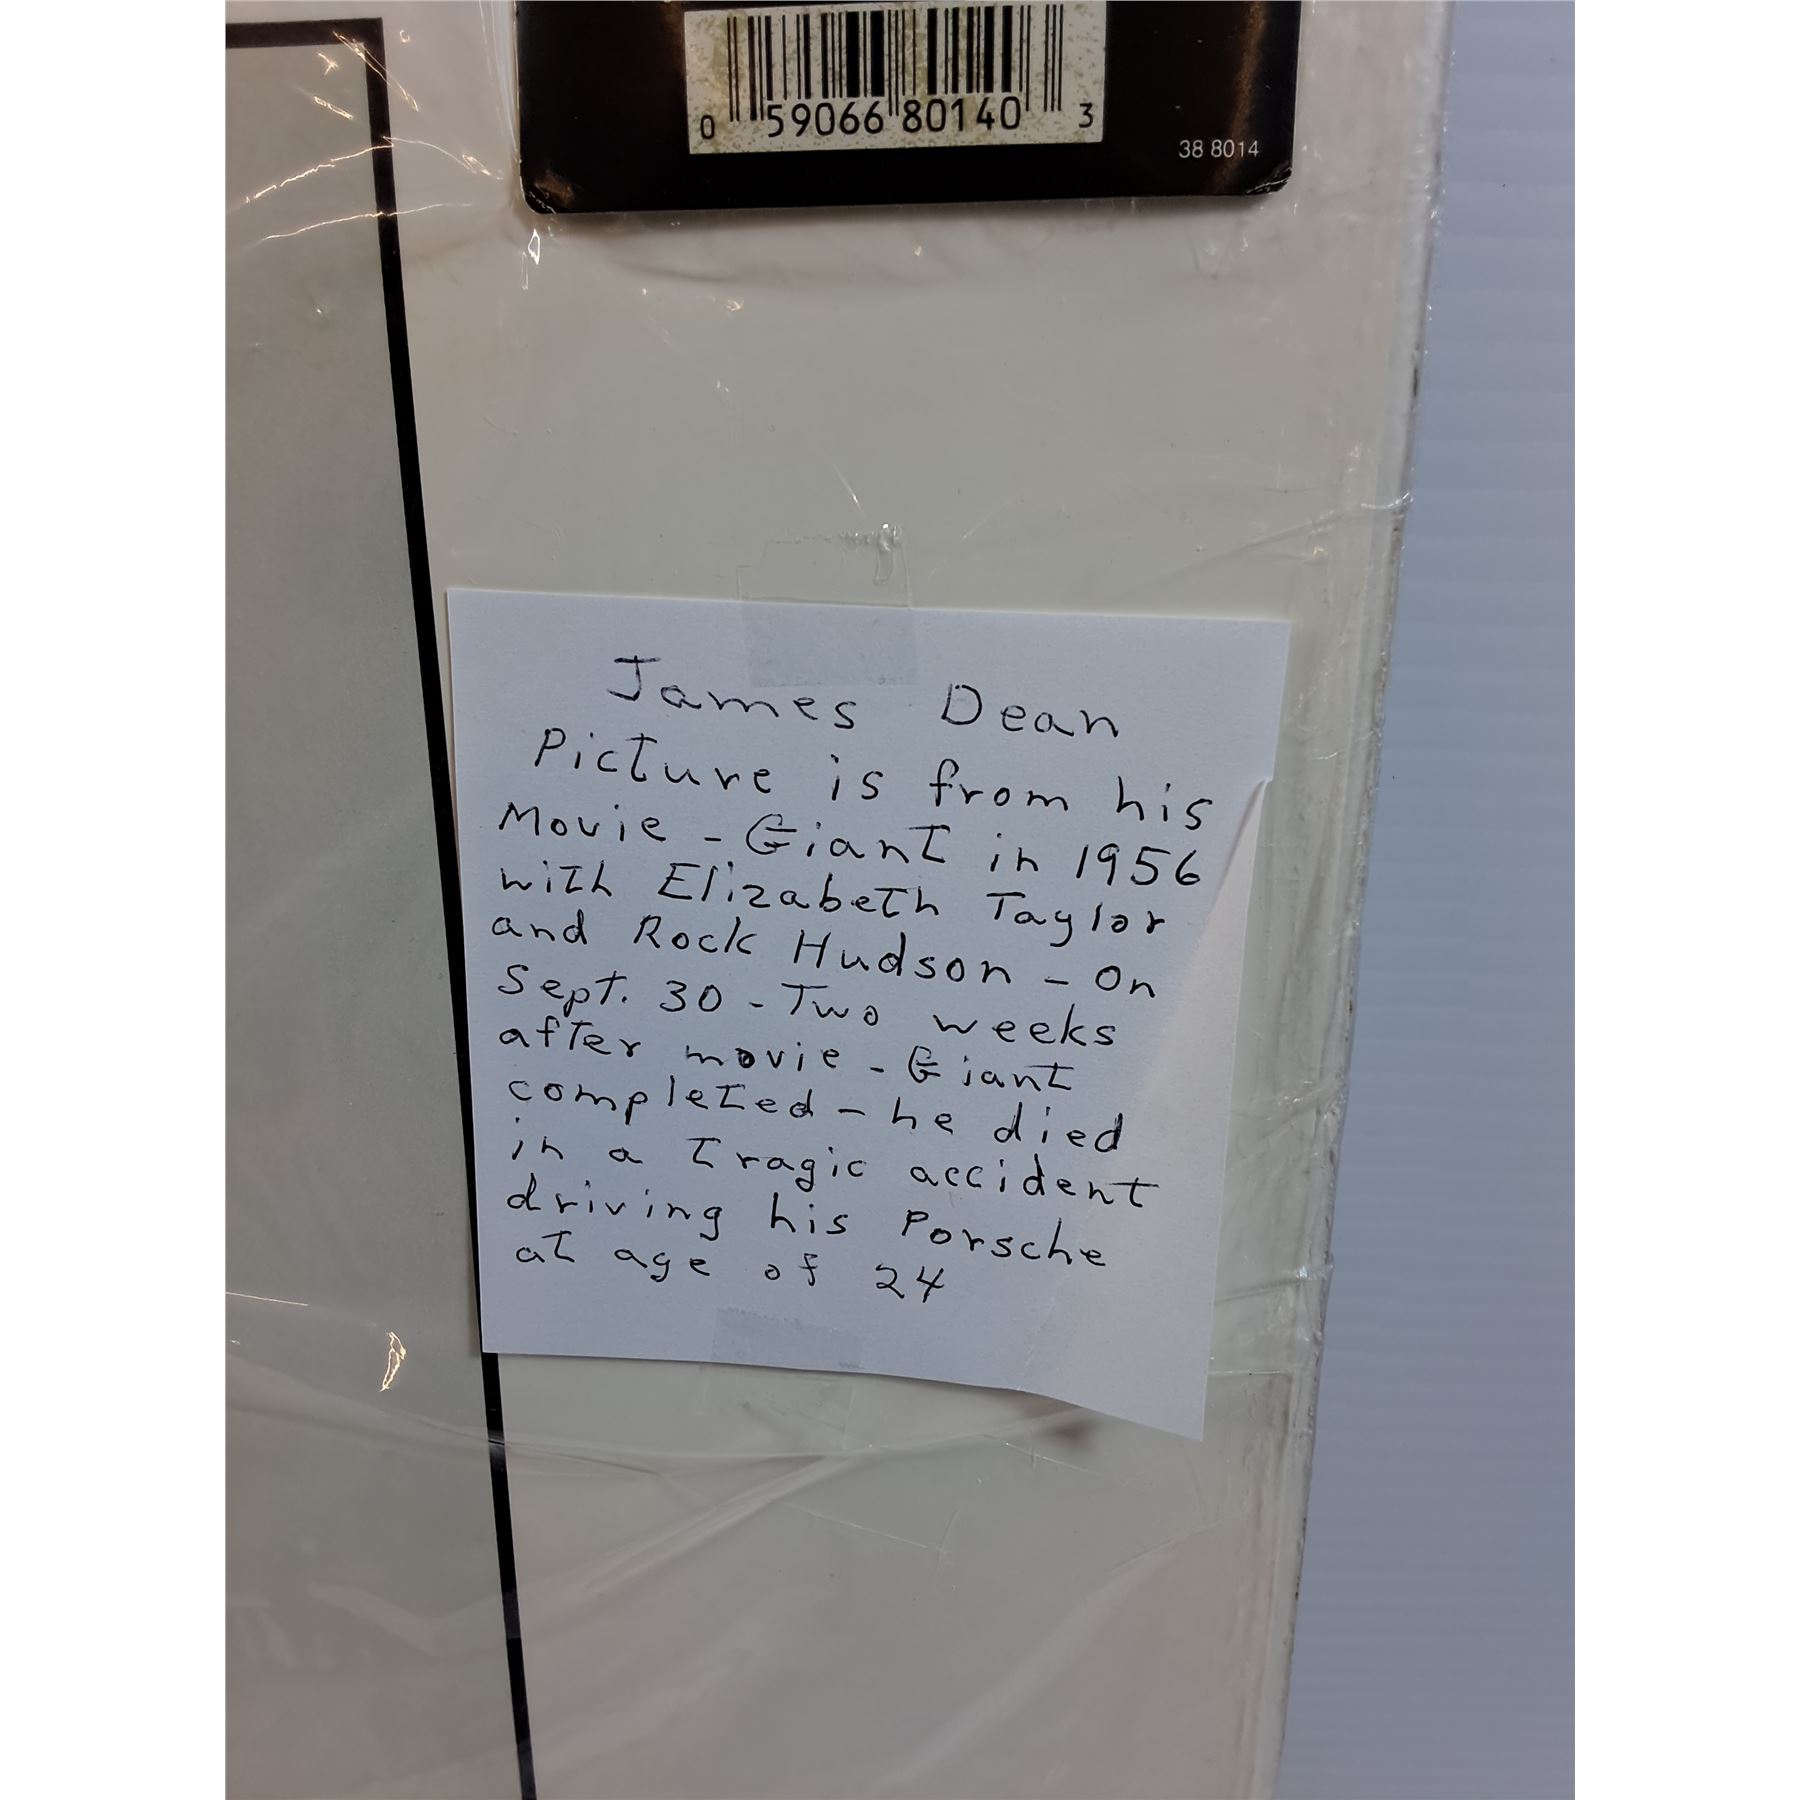 0 59066 80140 3
38 8014
James Dean
Picture is from his
Movie - Giant in 1956
with Elizabeth Taylor
and Rock Hudson - On
Sept. 30 - Two weeks
after movie - Giant
completed - he died
in a tragic accident
driving his Porsche
at age of 24